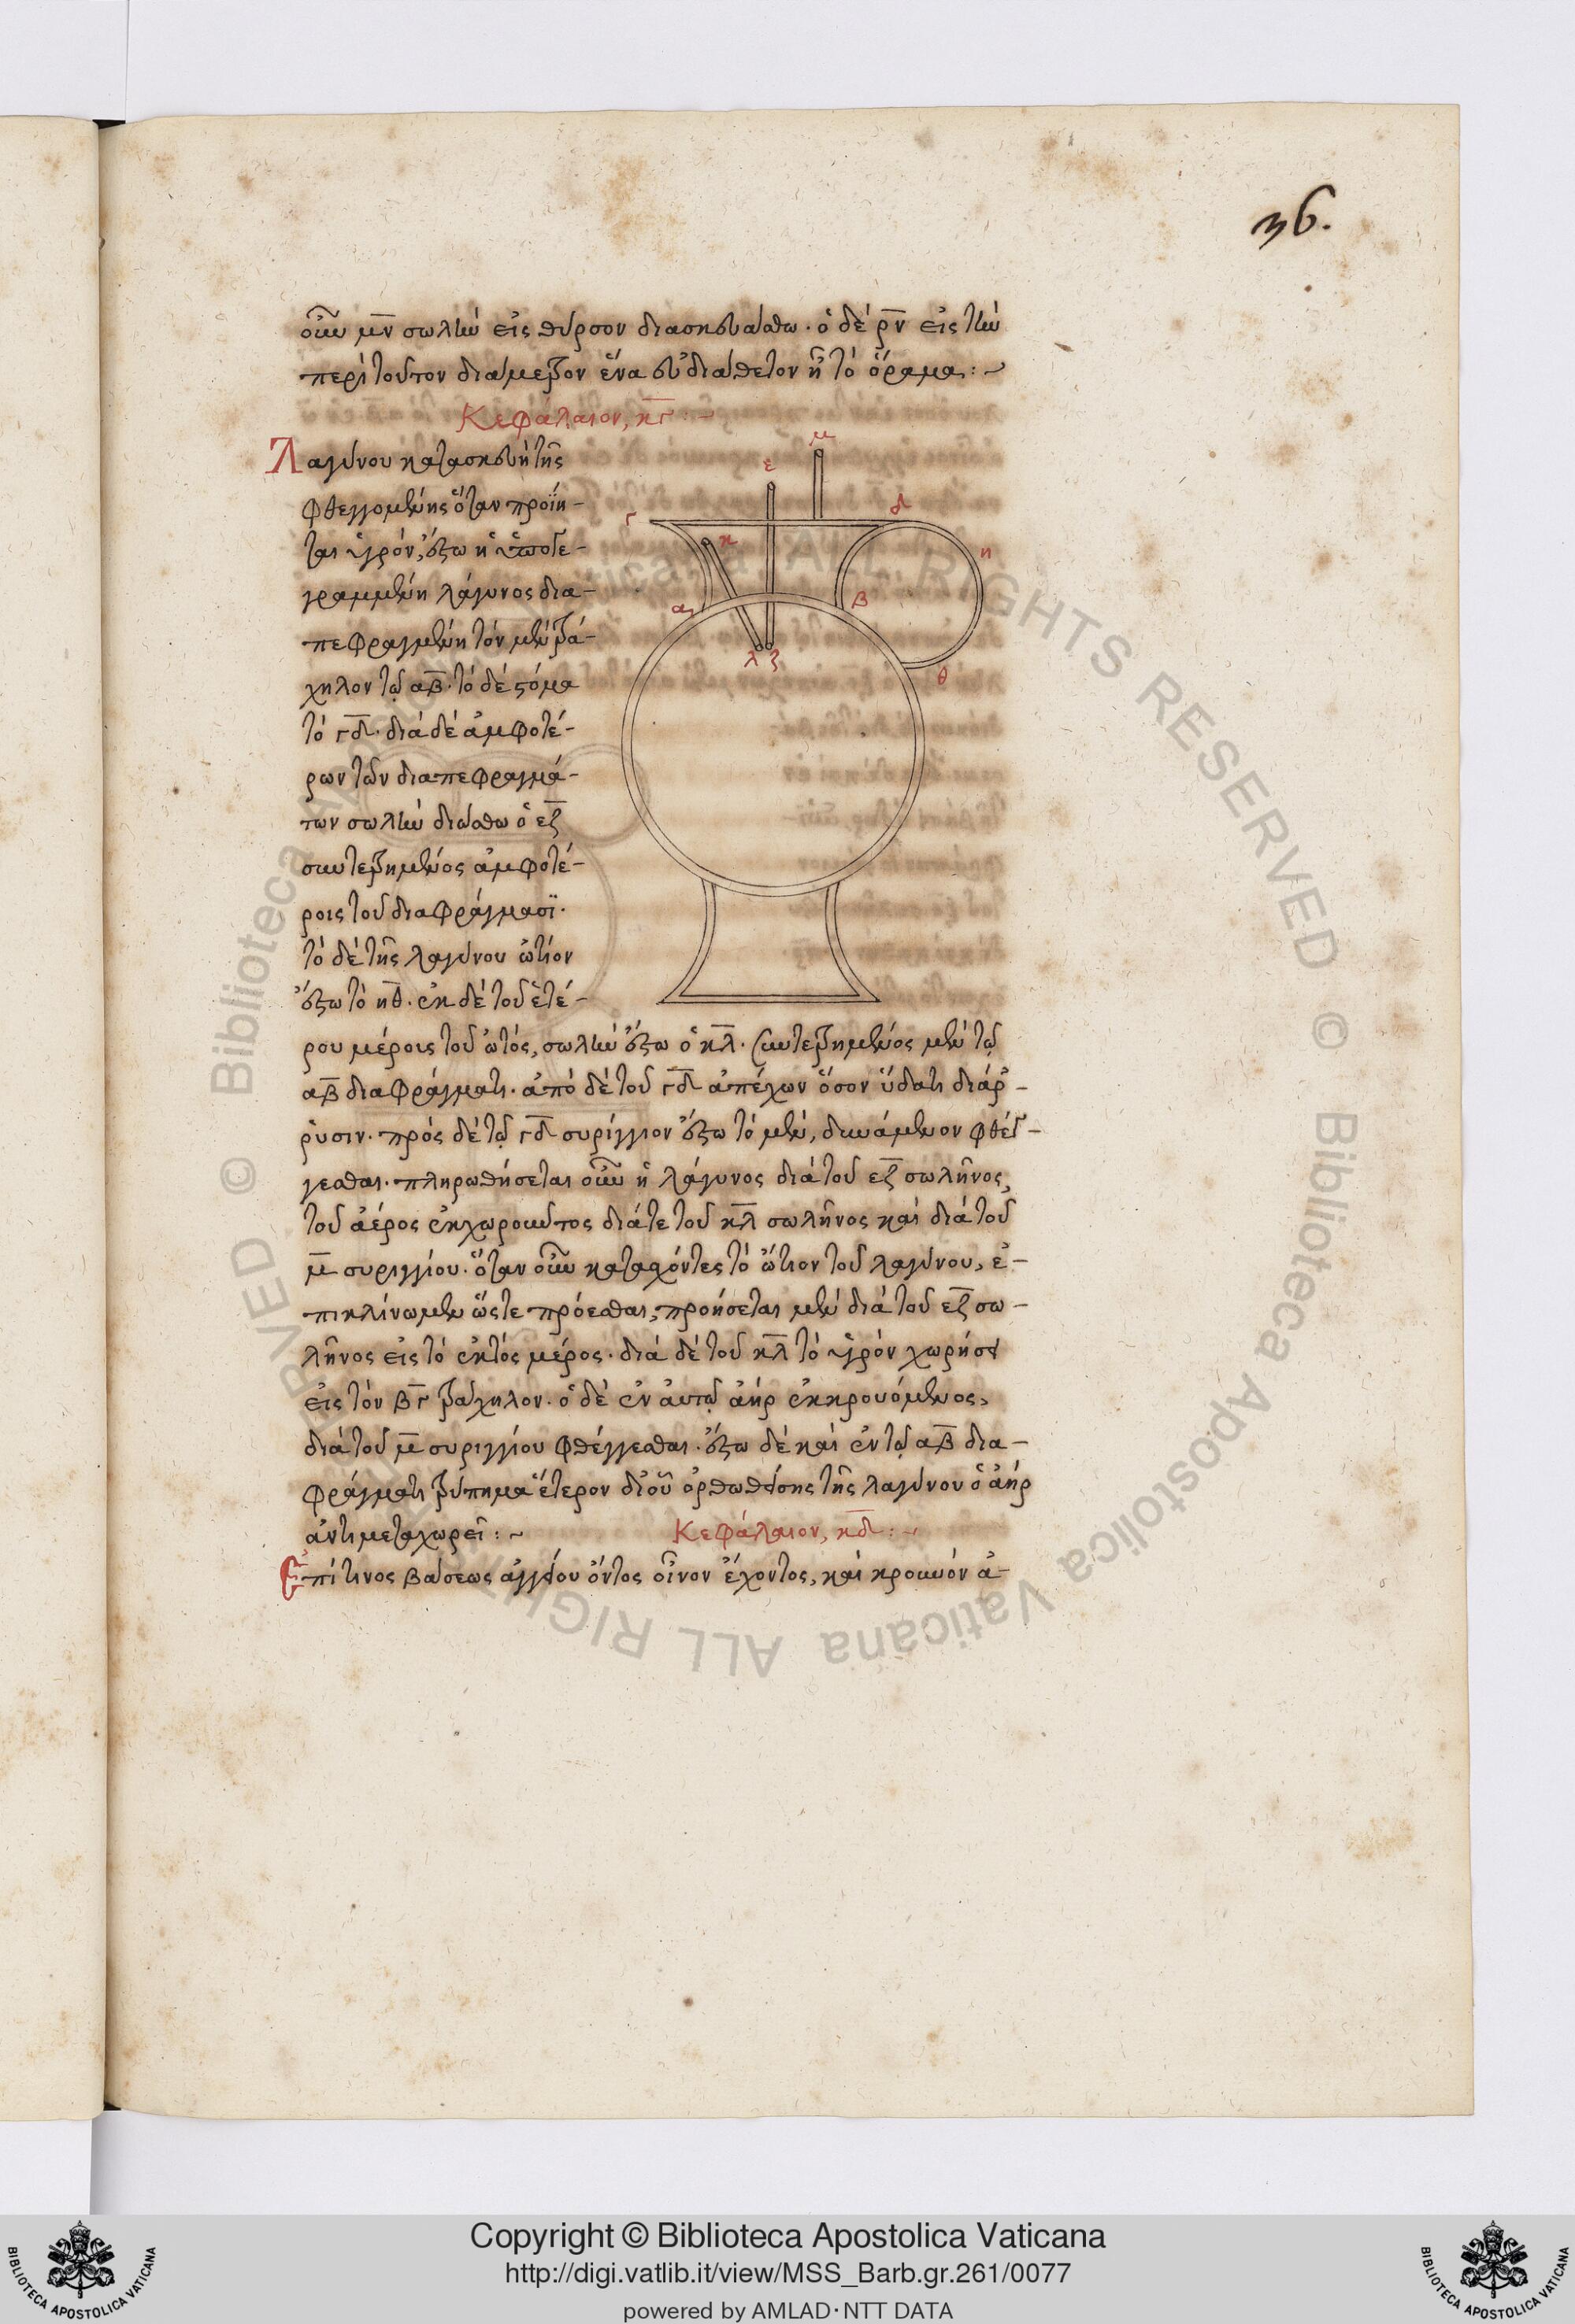 36.
οὖν μ̅ν̅ σωλὴν εἰς θύρσον διασκευάσθω. ὁ δὲ ρ̅ν̅ εἰς τὴν
περὶ τοῦτον διάμετρον ἕνα εὐδιάθετον ᾖ τὸ ὅραμα: ~
Κεφάλαιον, κ̅γ̅: ~
Λαγύνου κατασκευὴ τῆς
φθεγγομένης ὅταν προΐη-
ται ὑγρόν, ἔστω ἡ ὑπογε-
γραμμένη λάγυνος δια-
πεφραγμένη τὸν μὲν τρά-
χηλον τῷ α̅β̅. τὸ δὲ στόμα
τὸ γ̅δ̅. διὰ δὲ ἀμφοτέ-
ρων τῶν διαπεφραγμά-
των σωλὴν διώσθω ὁ ε̅ζ̅
συντετρημένος ἀμφοτέ-
ροις τοῦ διαφράγμασϊ.
τὸ δὲ τῆς λαγύνου ὠτίον
ἔστω τὸ η̅θ̅. ἐκ δὲ τοῦ ἑτέ-
ρου μέροις τοῦ ὠτός, σωλὴν ἔστω ὁ κ̅λ̅. συντετρημένος μὲν τῷ
α̅β̅ διαφράγματι. ἀπὸ δὲ τοῦ γ̅δ̅ ἀπέχων ὅσον ὕδατι διάρ-
ρυσιν. πρὸς δὲ τῷ γ̅δ̅ συρίγγιον ἔστω τὸ μὲν, δυνάμενον φθέγ-
γεσθαι. πληρωθήσεται οὖν ἡ λάγυνος διὰ τοῦ ε̅ζ̅ σωλῆνος,
τοῦ ἀέρος ἐκχωροῦντος διά τε τοῦ κ̅λ̅ σωλῆνος καὶ διὰ τοῦ
μ̅ συριγγίου. ὅταν οὖν κατασχόντες τὸ ὤτιον τοῦ λαγύνου, ἐ-
πικλίνωμεν ὥςτε πρόεσθαι, προήσεται μὲν διὰ τοῦ ε̅ζ̅ σω-
λῆνος εἰς τὸ ἐκτὸς μέρος. διὰ δὲ τοῦ κ̅λ̅ τὸ ὑγρὸν χωρήσει
εἰς τὸν β̅γ̅ τράχηλον. ὁ δὲ ἐν αὐτῷ ἀὴρ ἐκκρουόμενος,
διὰ τοῦ μ̅ συριγγίου φθέγγεσθαι. ἔστω δὲ καὶ ἐν τῷ α̅β̅ δια-
φράγματι τρύπημα ἕτερον δι οὗ ὀρθωθείσης τῆς λαγύνου ὁ ἀὴρ
ἀντιμεταχωρεῖ: ~
Κεφάλαιον, κ̅δ̅: ~
Ἐπί τινος βάσεως ἀγγείου ὄντος οἶνον ἔχοντος, καὶ κρουνὸν ἀ-
μ
ε
γ
δ
κ
η
α
β
λ
ζ
θ
Copyright © Biblioteca Apostolica Vaticana
http://digi.vatlib.it/view/MSS_Barb.gr.261/0077
powered by AMLAD·NTT DATA
BIBLIOTECA APOSTOLICA VATICANA
BIBLIOTECA APOSTOLICA VATICANA
© Biblioteca Apostolica Vaticana ALL RIGHTS RESERVED
© Biblioteca Apostolica Vaticana ALL RIGHTS RESERVED